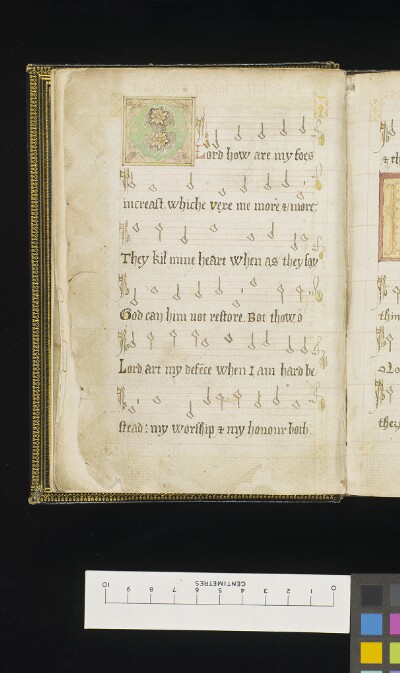 O
Lord how are my foes
increast whiche vexe me more & more:
They kil mine heart when as they say
God can him not restore. Bot thow o
Lord art my defēce when I am hard be
stead: my worship & my honour both.
CENTIMETRES
10 9 8 7 6 5 4 3 2 1 0